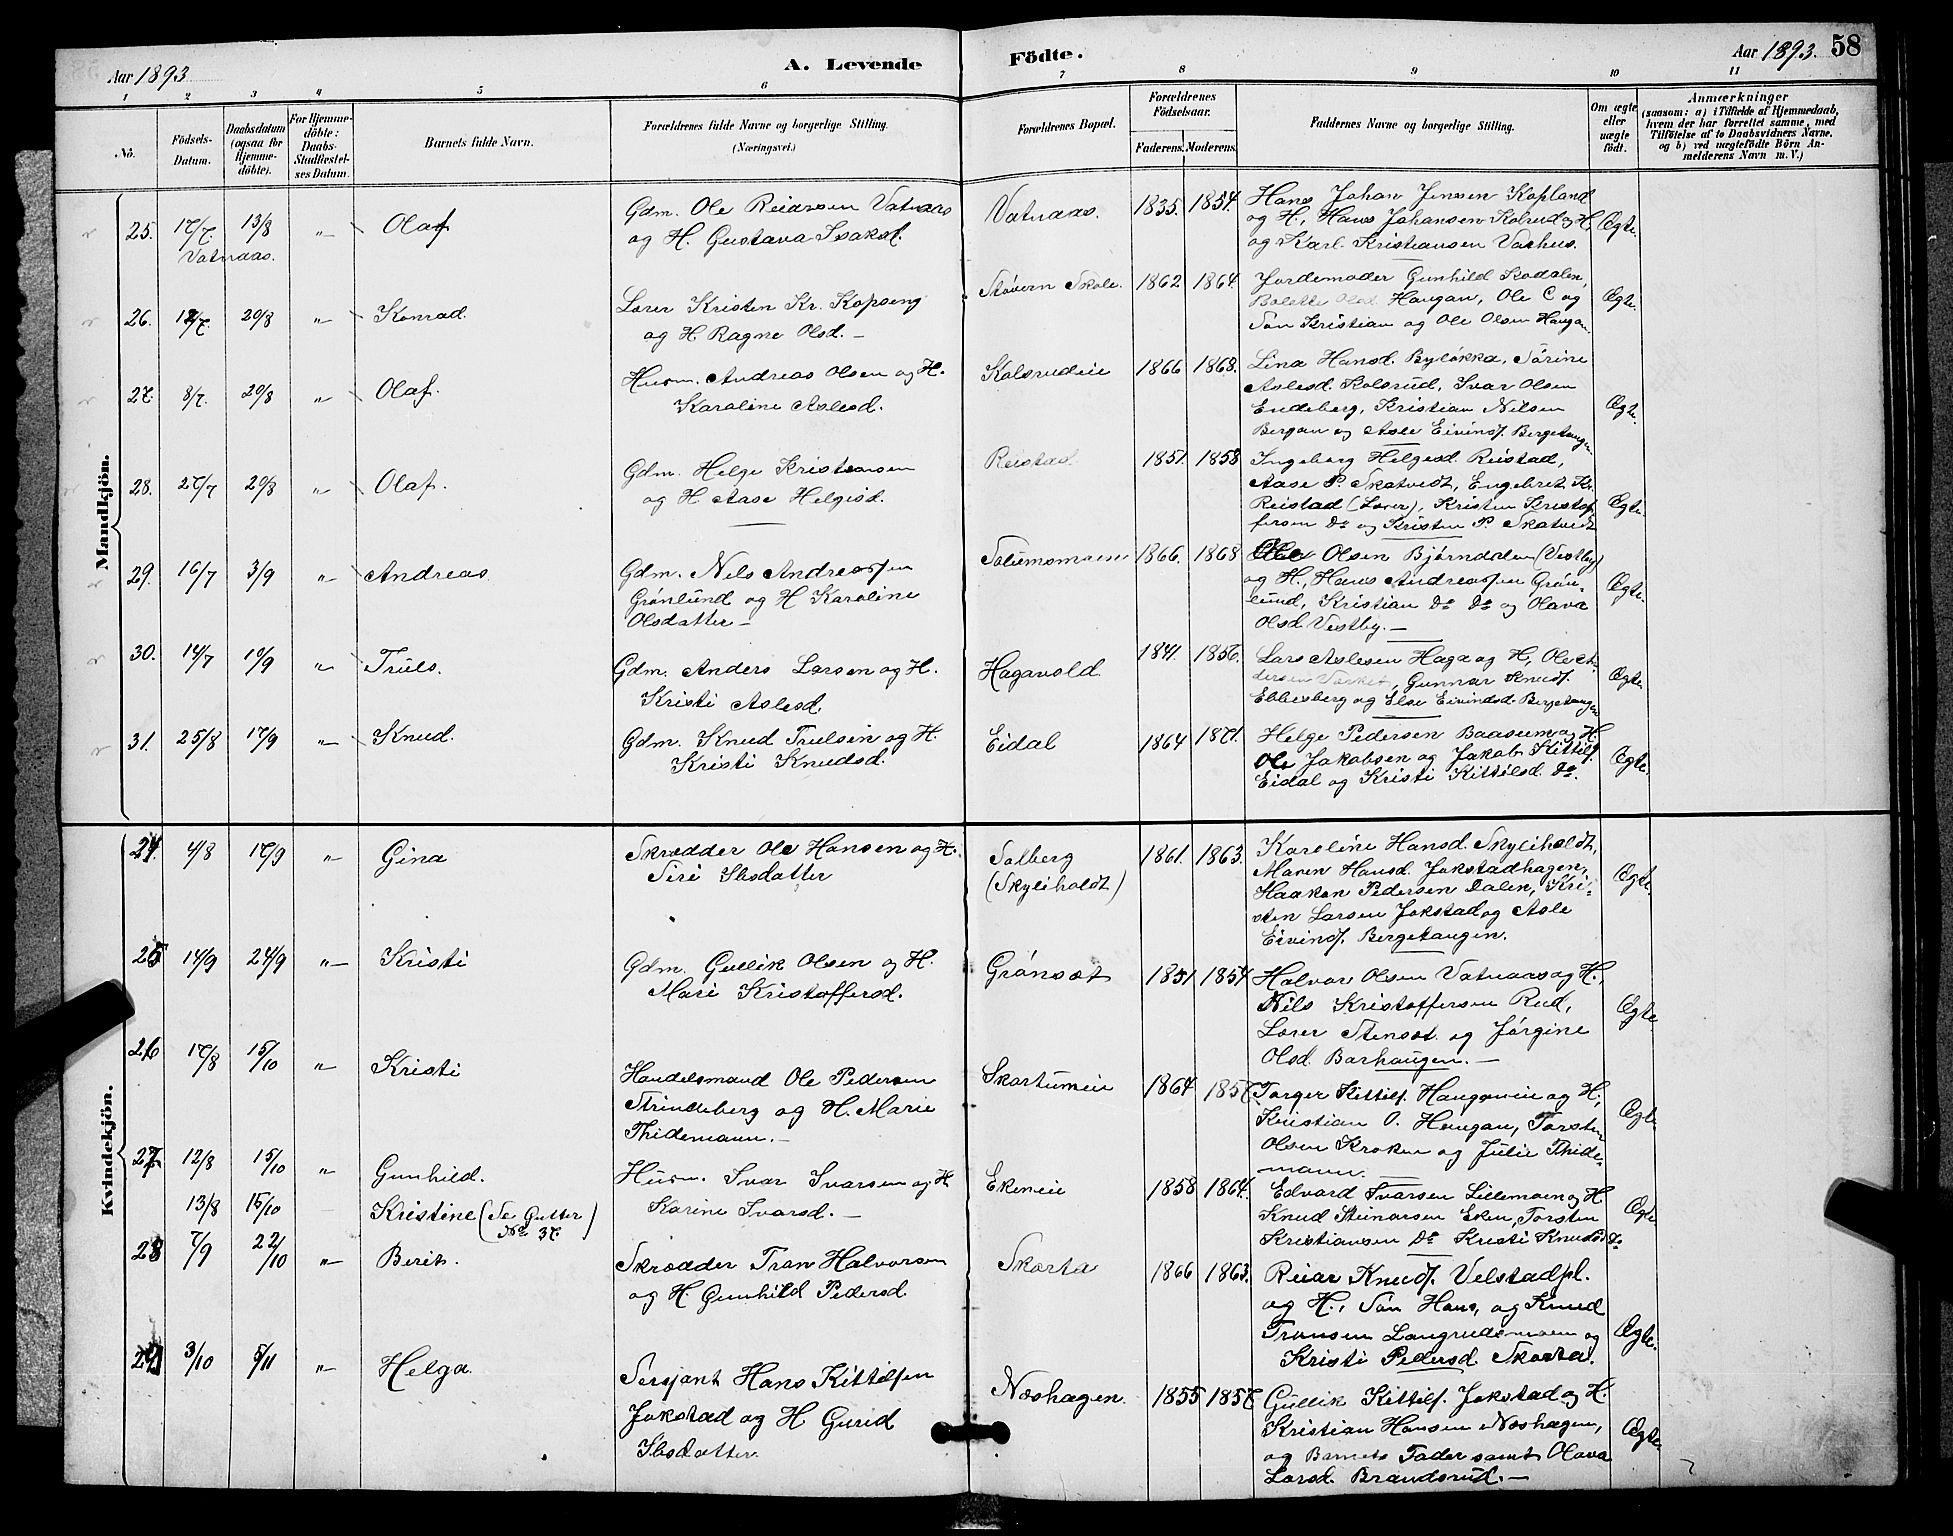 Aar 1893
A. Levende
Födte.
Aar 1893. 58
1 2 3 4 5 6 7 8 9 10 11
No.
Födsels-Datum.
Daabsdatum (ogsaa for Hjemme-döbte).
For Hjemme-döbte: Daabs-Stadfæstel-ses Datum.
Barnets fulde Navn.
Forældrenes fulde Navne og borgerlige Stilling.
(Næringsvei.)
Forældrenes Bopæl.
Forældrenes Födselsaar.
Faderens. Moderens.
Faddernes Navne og borgerlige Stilling.
Om ægte eller uægte födt.
Anmærkninger
(saasom: a) i Tilfælde af Hjemmedaab,
hvem der har forrettet samme, med
Tilföielse af to Daabsvidners Navne,
og b) ved uægtefödte Börn An-
melderens Navn m. V.)
Mandkjön.
25. 17/7. 13/8 " Olaf
Vatnaas.
Gdm. Ole Reiarsen Vatnaas
og H. Gustava Isaksd.
Vatnaas. 1835. 1854.
Hans Johan Jensen Kopland
og H, Hans Johansen Kolsrud og H
og Karl Kristiansen Vashus.
Ægte.
26. 12/7. 20/8 " Konrad.
Lærer Kristen Kr. Kopseng
og H Ragne Olsd. –
Støvern Skole. 1862 1864.
Jordemoder Gunhild Skodalen,
Bolette Olsd. Haugan, Ole C og
Søn Kristian og Ole Olsen Haugan
Ægte.
27. 8/7. 20/8 " Olaf.
Husm. Andreas Olsen og H.
Karoline Aslesd.
Kolsrudeie 1866 1868.
Lina Hansd. Byløkka, Sörine
Aslesd. Kolsrud, Ivar Olsen
Endeberg, Kristian Nilsen
Bergan og Asle Eivinds. Bergetangen
Ægte.
28. 27/7 20/8 " Olaf.
Gdm. Helge Kristensen
og H Aase Helgesd.
Reistad. 1851. 1858
Ingeborg Helgesd. Reistad,
Aase P. Skatvedt, Engebret Kr.
Reistad (Lærer), Kristen Kristof-
fersen Do og Kristen P. Skatvedt
Ægte.
29. 16/7 3/9 " Andreas
Gdm. Nels Andreassen
Grönlund og H Karoline
Olsdatter –
Solumsmoen 1866. 1868
Ole Olsen Bjørndalen (Vestby)
og H, Hans Andreassen Grön-
lund, Kristian Do Do og Olava
Olsd Vestby. –
Ægte.
30. 14/7 10/9 " Truls.
Gdm. Anders Larsen og H.
Kristi Aslesd.
Hagavold. 1841. 1856.
Lars Aslesen Haga og H, Ole An-
dersen Værket, Gunnar Knuds.
Ebbesberg og Else Eivindsd. Bergetangen
Ægte.
31. 25/8 17/9 " Knud.
Gdm. Knud Trulsen og H.
Kristi Knudsd.
Eidal 1864 1871.
Helge Pedersen Baasum og H
Ole Jakobsen og Jakob Kittils.
Eidal og Kristi Kittilsd. Do.
Ægte.
Kvindekjön.
24. 4/8 17/9 " Gina
Skrædder Ole Hansen og H.
Siri Ilsdatter
Solberg
(Skyliholdt) 1861. 1863.
Karoline Hansd. Skyliholdt,
Maren Hansd. Jokstadhagen,
Haaken Pedersen Dalen, Kri-
sten Larsen Jokstad og Asle
Eivinds. Bergetangen.
Ægte.
25 14/9 24/9 " Kristi
Gdm. Gullik Olsen og H.
Mari Kristoffersd.
Grönsæt 1851 1854
Halvor Olsen Vatnaas og H.,
Nils Kristoffersen Rud,
Lærer Stensæt og Jörgine
Olsd. Barhaugen. –
Ægte
26 17/8 15/10 " Kristi
Handelsmand Ole Pedersen
Strindeberg og H. Marie
Thidemann. –
Skartumeie 1864 1857.
Torger Kittils. Haugsmeie og H,
Kristian O. Haugan, Torsten
Olsen Kroken og Julie Thide-
mann.
Ægte
27 12/8 15/10 " Gunhild.
Husm. Ivar Ivarsen og H
Karine Ivarsd. –
Ekeneie 1858 1864.
13/8 15/10 Kristine (Se Gutter No 37.)
Edvard Ivarsen Lillemoen og H
Knud Steinarsen Eken, Torsten
Kristiansen Do Kristi Knudsd Do
Ægte
28 7/9 22/10 " Berit.
Skrædder Tran Halvorsen
og H. Gunhild Pedersd.
Skarta 1866 1863.
Reiar Knuds. Velstadpl.
og H., Søn Hans, og Knud
Transen Langrudsmoen og
Kristi Pedersd. Skarta.
Ægte.
29 3/10 5/11 " Helga.
Sersjant Hans Kittilsen
Jokstad og H Gurid
Ilsdatter.
Næshagen. 1855 1857
Gullik Kittils. Jokstad og H.
Kristian Hansen Næshagen,
og Barnets Fader samt Olava
Larsd. Brandsrud. –
Ægte